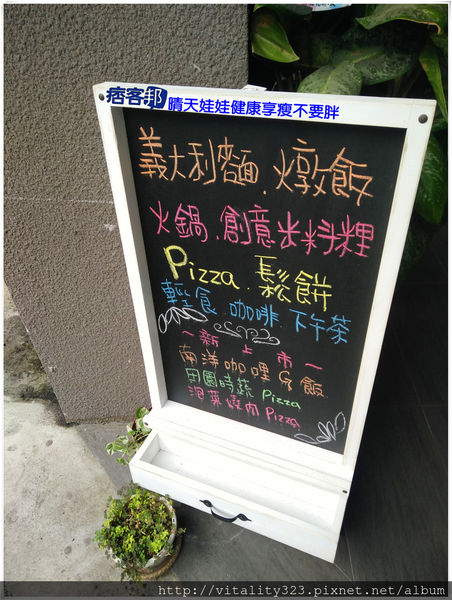 痞客邦 晴天娃娃健康享瘦不要胖
義大利麵.燉飯
火鍋.創意出料理
Pizza.鬆餅
輕食.咖啡.下午茶
~新上市~
南洋咖哩G飯
田園時蔬Pizza
泡菜燒肉Pizza
http://vitality323.pixnet.net/album